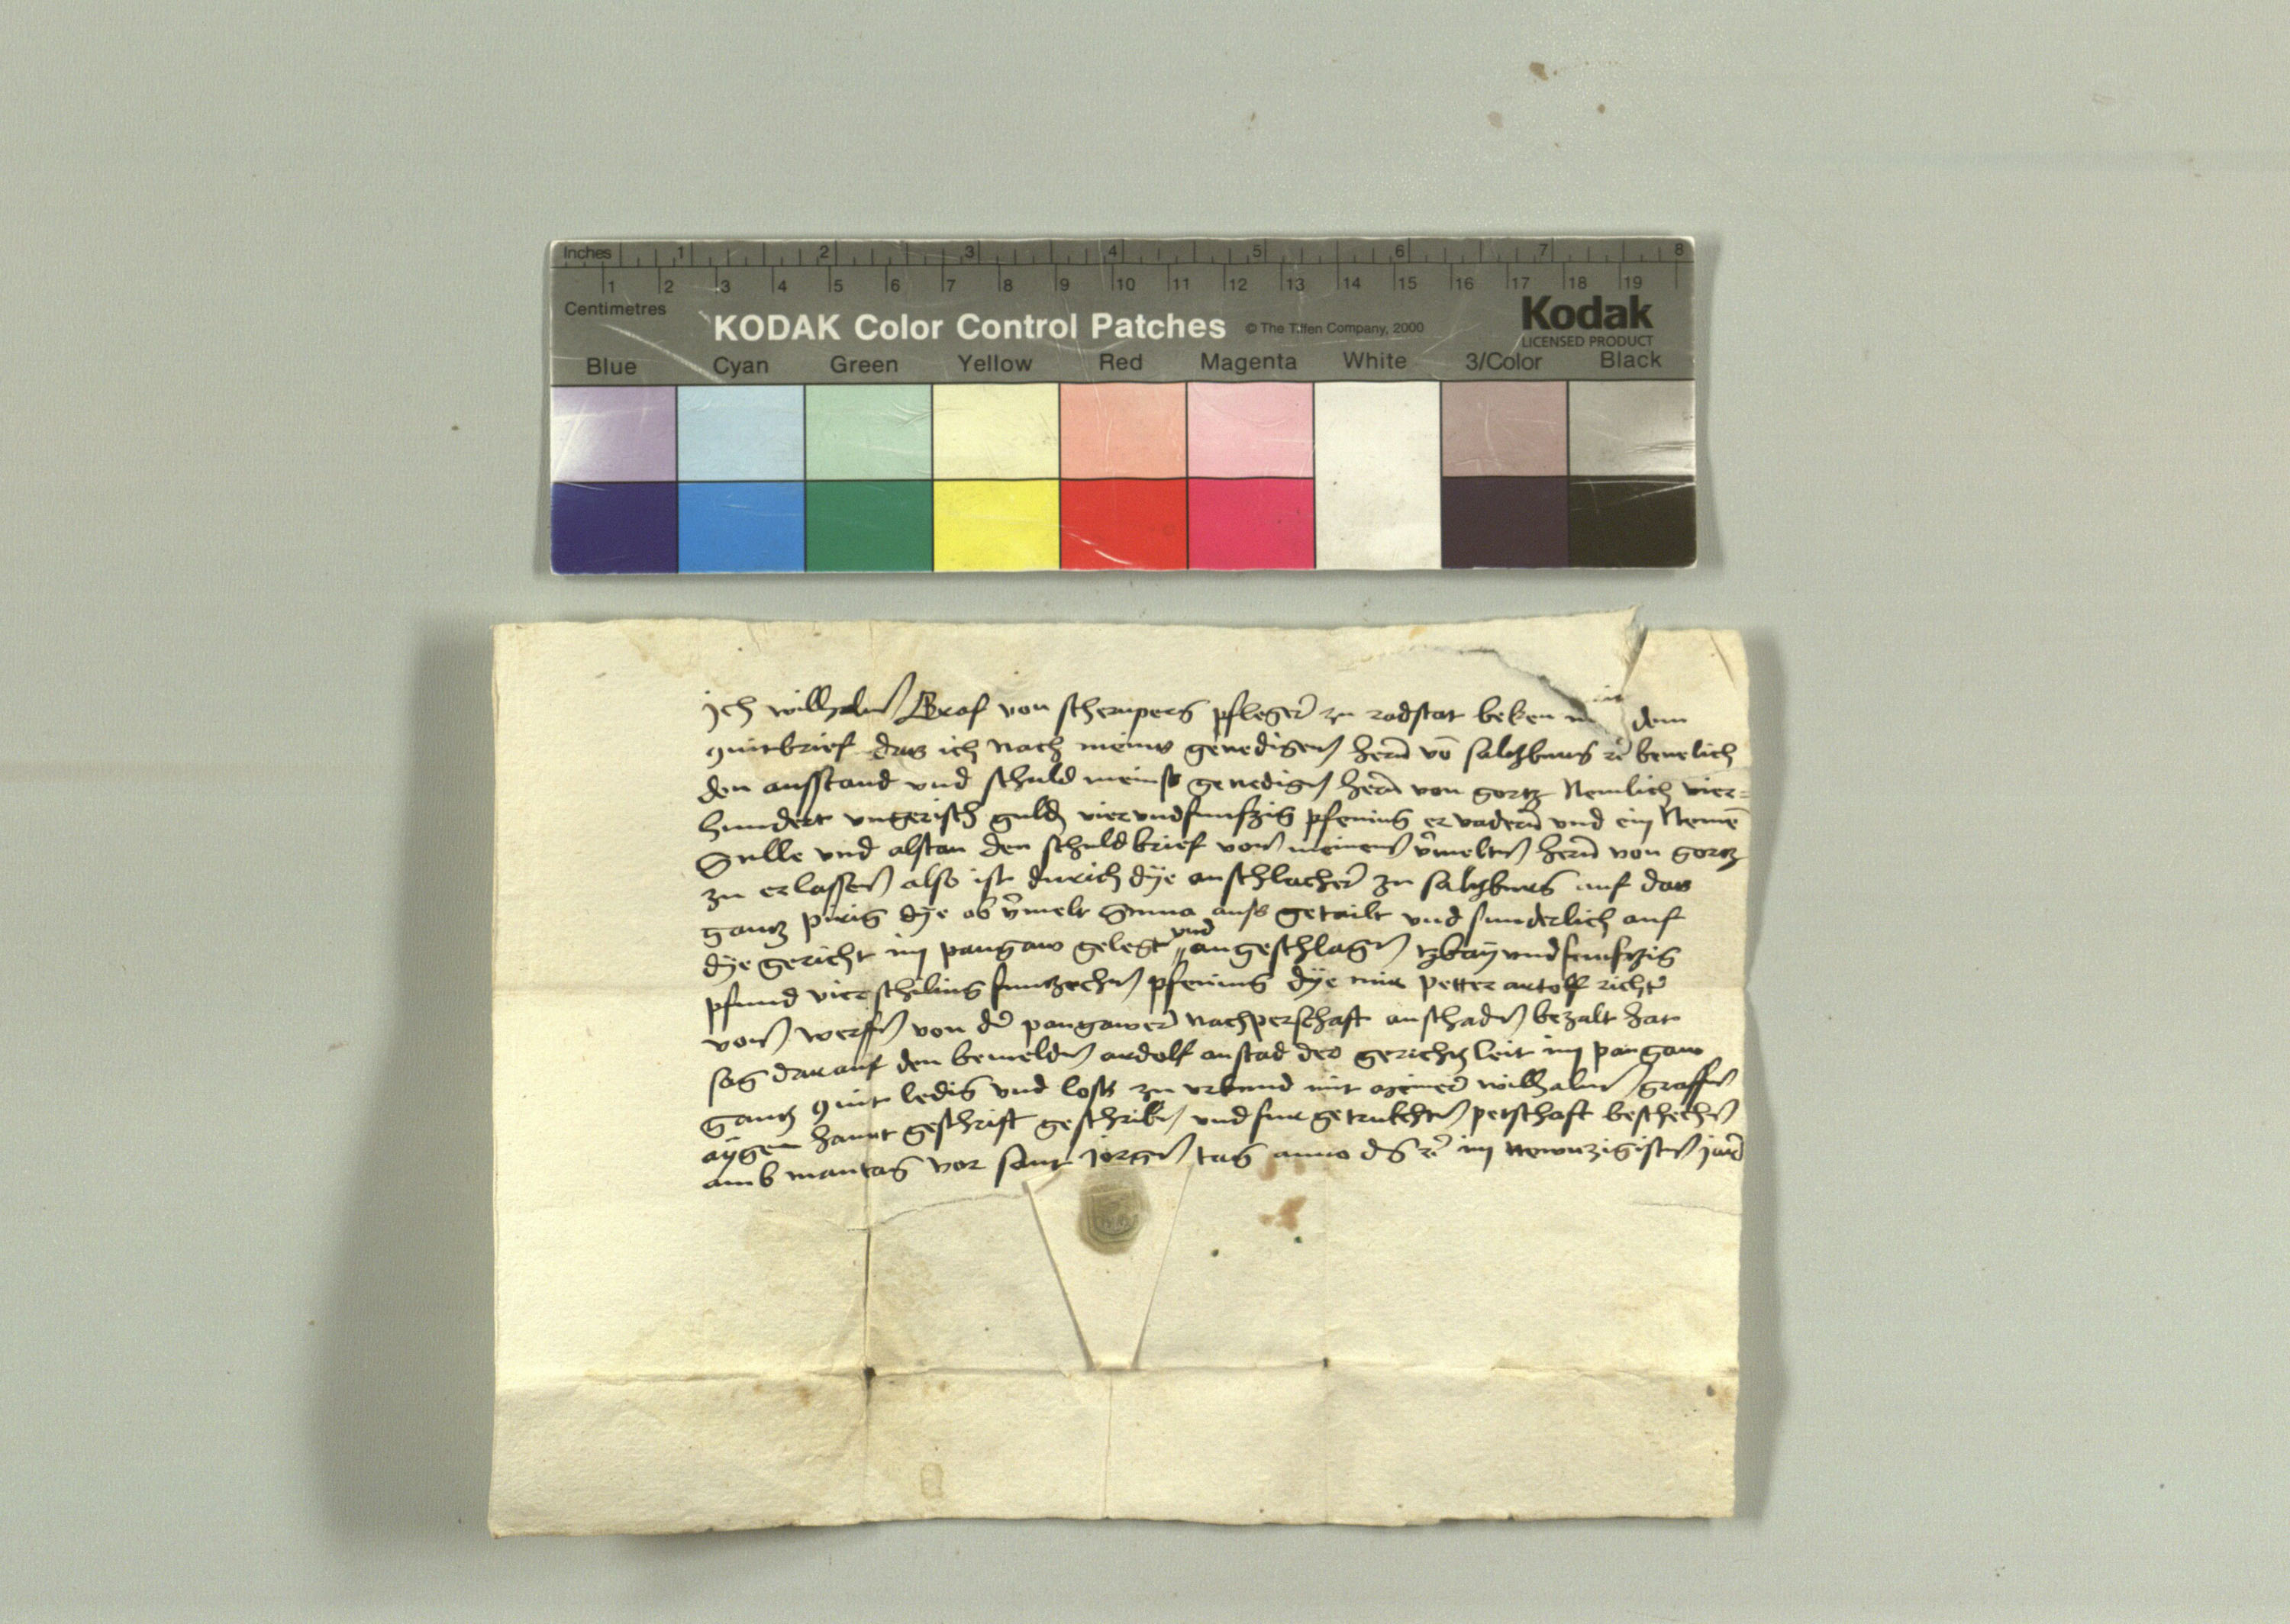 Inches 1 2 3 4 5 6 7 8
1 2 3 4 5 6 7 8 9 10 11 12 13 14 15 16 17 18 19
Centimetres
KODAK Color Control Patches © The Tiffen Company, 2000 Kodak
LICENSED PRODUCT
Blue Cyan Green Yellow Red Magenta White 3/Color Black
Ich wilhalm Graf von schernperg pfleger zu radstat beken mit dem
quitbrief das ich nach meins genedigen hern vō salczburg rc̄ beuelich
den ausstand vnd schuld meinss genedign hern von gortz Nemlich vier=
hundert vngerisch guldn vierundfunfzig pfening er vadern vnd ein Nemē
Sulle vnd alstan den schuldbrief von meinem v̄melten hern von gortz
zu erlassen also ist durich dÿe anschlacher zu salczburg auf das
gantz pirig dÿe ob v̄melt Suma auss getailt vnd sunderlich auf
dÿe gericht im pangaw gelegt vnd angeschlagn tzbaÿundfunfzig
pfund vier schiling funtzechn pfening dÿe mir petter artolf richter
von werffn von der pangawer nachperschaft an schadn bezalt hat
sag darauf den bemeldn ardolf anstad des gerichtz leit im pangaw
gantz quit ledig vnd loss zu vrkund mit meiner wilhalm graffn
aÿgen hannt geschrift geschribn vnd fur getrukchtn petschaft beschechn
amb mantag vor sant jörgn tag anno ds rc̄ im newnzigistn jar